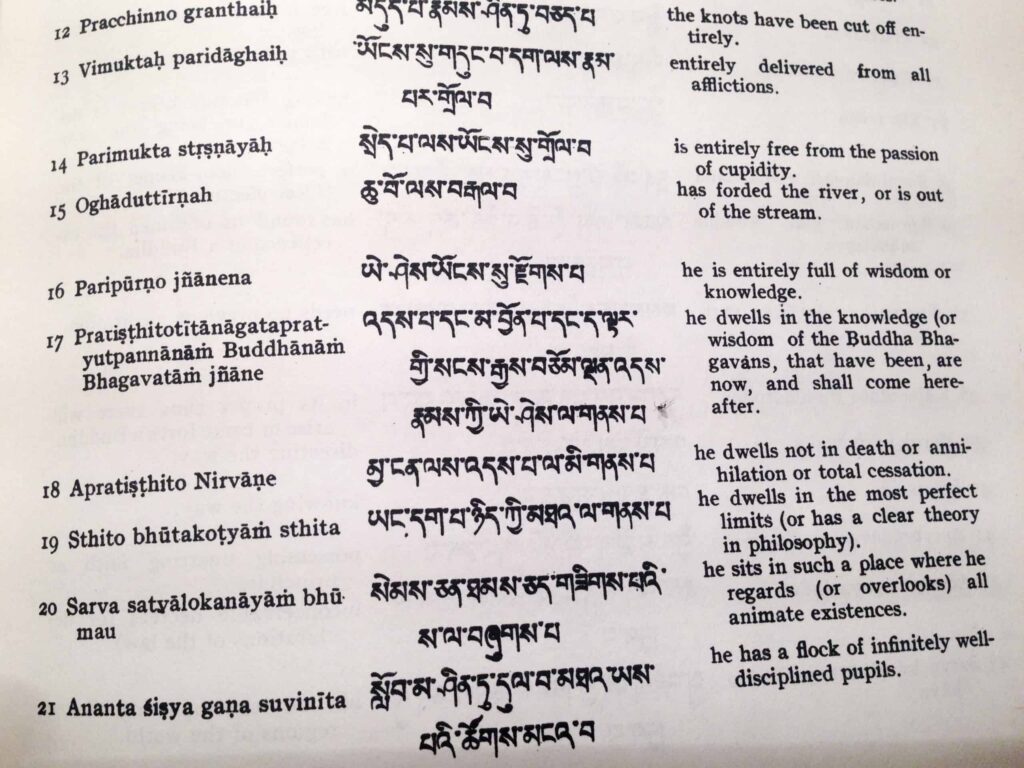 12 Pracchinno granthaiḥ མདུད་པ་རྣམས་ཤིན་ཏུ་བཅད་པ the knots have been cut off en-
tirely.
13 Vimuktaḥ paridāghaiḥ ཡོངས་སུ་གདུང་བ་དག་ལས་རྣམ་ entirely delivered from all
པར་གྲོལ་བ afflictions.
14 Parimukta stṛṣṇāyāḥ སྲེད་པ་ལས་ཡོངས་སུ་གྲོལ་བ is entirely free from the passion
of cupidity.
15 Oghāduttīrṇah ཆུ་བོ་ལས་བརྒལ་བ has forded the river, or is out
of the stream.
16 Paripūrṇo jñānena ཡེ་ཤེས་ཡོངས་སུ་རྫོགས་པ he is entirely full of wisdom or
knowledge.
17 Pratiṣthitotītānāgataprat- འདས་པ་དང་མ་བྱོན་པ་དང་ད་ལྟར་ he dwells in the knowledge (or
yutpannānāṁ Buddhānāṁ གྱི་སངས་རྒྱས་བཅོམ་ལྡན་འདས་ wisdom of the Buddha Bha-
Bhagavatāṁ jñāne རྣམས་ཀྱི་ཡེ་ཤེས་ལ་གནས་པ gaváns, that have been, are
now, and shall come here-
after.
18 Apratiṣthito Nirvāṇe མྱ་ངན་ལས་འདས་པ་ལ་མི་གནས་པ he dwells not in death or anni-
hilation or total cessation.
19 Sthito bhūtakoṭyāṁ sthita ཡང་དག་པ་ཉིད་ཀྱི་མཐའ་ལ་གནས་པ he dwells in the most perfect
limits (or has a clear theory
in philosophy).
20 Sarva satvālokanāyāṁ bhū- སེམས་ཅན་ཐམས་ཅད་གཟིགས་པའི་ he sits in such a place where he
mau ས་ལ་བཞུགས་པ regards (or overlooks) all
animate existences.
21 Ananta śiṣya gaṇa suvinīta སློབ་མ་ཤིན་ཏུ་དུལ་བ་མཐའ་ཡས་ he has a flock of infinitely well-
པའི་ཚོགས་མངའ་བ disciplined pupils.